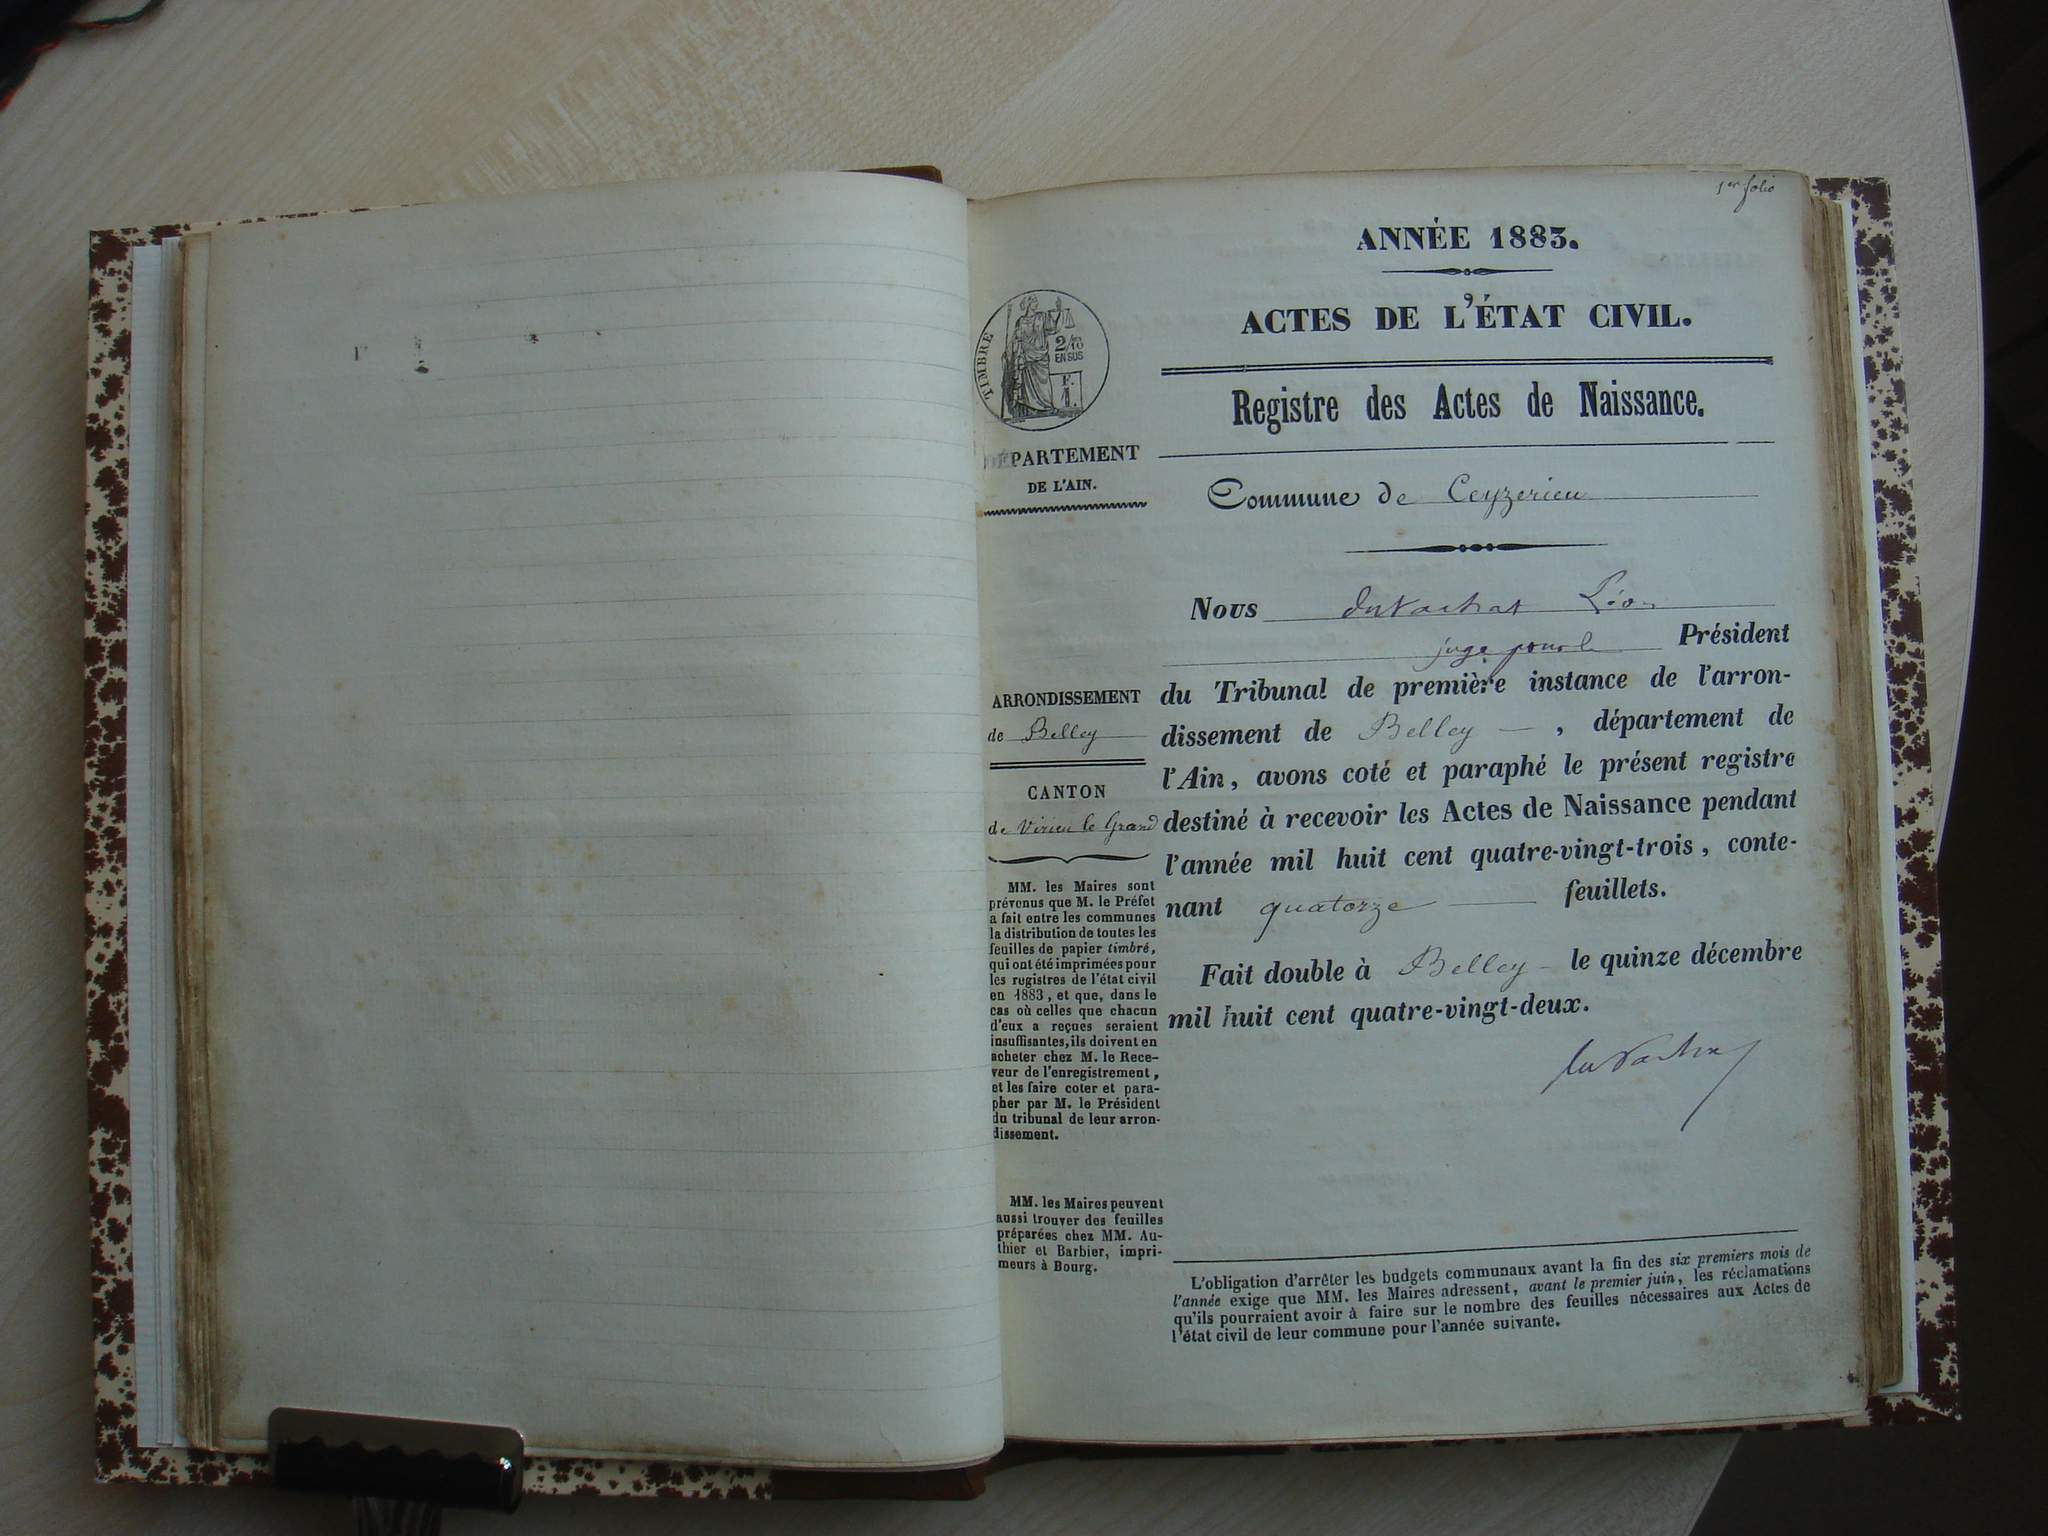 1er folio
ANNÉE 1883.
ACTES DE L'ÉTAT CIVIL.
Registre des Actes de Naissance.
TIMBRE
2/10
EN SUS
F.
1.
DÉPARTEMENT
DE L'AIN.
Commune de Ceyzerieu
Nous Léon
juge pour le Président
ARRONDISSEMENT
de Belley
CANTON
de Virieu le Grand
du Tribunal de première instance de l'arron-
dissement de Belley — , département de
l'Ain, avons coté et paraphé le présent registre
destiné à recevoir les Actes de Naissance pendant
l'année mil huit cent quatre-vingt-trois, conte-
nant quatorze — feuillets.
Fait double à Belley – le quinze décembre
mil huit cent quatre-vingt-deux.
MM. les Maires sont
prévenus que M. le Préfet
a fait entre les communes
la distribution de toutes les
feuilles de papier timbré,
qui ont été imprimées pour
les registres de l'état civil
en 1883, et que, dans le
cas où celles que chacun
d'eux a reçues seraient
insuffisantes, ils doivent en
acheter chez M. le Rece-
veur de l'enregistrement,
et les faire coter et para-
pher par M. le Président
du tribunal de leur arron-
dissement.
MM. les Maires peuvent
aussi trouver des feuilles
préparées chez MM. Au-
thier et Barbier, impri-
meurs à Bourg.
L'obligation d'arrêter les budgets communaux avant la fin des six premiers mois de
l'année exige que MM. les Maires adressent, avant le premier juin, les réclamations
qu'ils pourraient avoir à faire sur le nombre des feuilles nécessaires aux Actes de
l'état civil de leur commune pour l'année suivante.